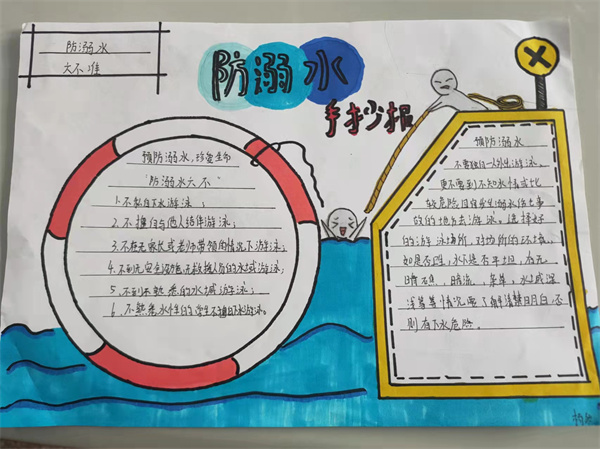 防溺水
六不准
防溺水
手抄报
预防溺水,珍爱生命
"防溺水六不"
1.不私自下水游泳;
2.不擅自与他人结伴游泳;
3.不在无家长或老师带领的情况下游泳;
4.不到无安全设施、无救援人员的水域游泳;
5.不到不熟悉的水域游泳;
6.不熟悉水性的学生不擅自下水游泳。
预防溺水
不要独自一人外出游泳。
更不要到不知水情或比
较危险且容易发生溺水伤亡事
故的地方去游泳。选择好
的游泳场所,对场所的环境,
如是否
水下是否平坦,有无
暗礁,暗流,杂草,水域深
浅等情况要了解清楚
则有下水危险。